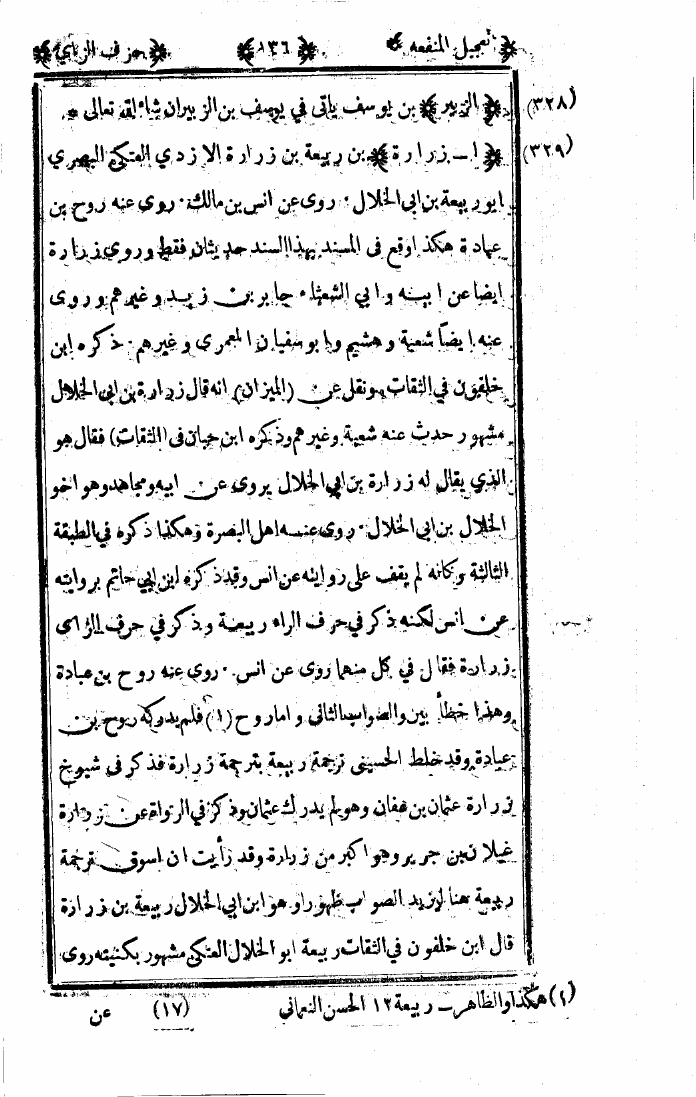 ﴿تعجيل المنفعه﴾ ﴿١٣٦﴾ ﴿حرف الزاي﴾
(٣٢٨) ﴿الزبير﴾ بن يوسف ياتى في يوسف بن الزبيران شاء الله تعالى *
(٣٢٩) ﴿ا ـ زرارة﴾ بن ربيعة بن زرارة الازدي العتكي البصري
ابوربيعة بن ابى الخلال · روى عن انس بن مالك · روى عنه روح بن
عبادة هكذا وقع فى المسند بهذا السند حديثان فقط وروى زرارة
ايضا عن ابيه و ابي الشعثاء جابر بن زيد وغيرهم وروى
عنه ايضاً شعبة وهشيم وابوسفيان المعمرى وغيرهم · ذكره ابن
خلفون في الثقات ونقل عن (الميزان) انه قال زرارة بن ابى الخلال
مشهور حدث عنه شعبة وغيرهم وذكره ابن حبان فى (الثقات) فقال هو
الذي يقال له زرارة بن ابي الخلال يروى عن ابيه ومجاهد وهو اخو
الخلال بن ابى الخلال · روى عنه اهل البصرة وهكذا ذكره في الطبقة
الثالثة وكانه لم يقف على روايته عن انس وقد ذكره ابن ابي حاتم بروايته
عن انس لكنه ذكر في حرف الراء ربيعة وذكر في حرف الزاى
زرارة فقال في كل منهما روى عن انس · روى عنه روح بن عبادة
وهذا خطأ بين والصواب الثانى واما روح (١) فلم يدركه روح بن
عبادة وقد خلط الحسينى ترجمة ربيعة بترجمة زرارة فذكر فى شيوخ
زرارة عثمان بن عفان وهو لم يدرك عثمان وذكر في الرواة عن زرارة
غيلان بن جرير وهو اكبر من زرارة وقد رأيت ان اسوق ترجمة
ربيعة هنا ليزيد الصواب ظهورا وهو ابن ابى الخلال ربيعة بن زرارة
قال ابن خلفون في الثقات ربيعة ابو الخلال العتكي مشهور بكنيته روى
(١) هكذا والظاهر ـ ربيعة ١٢ الحسن النعمانى (١٧) عن